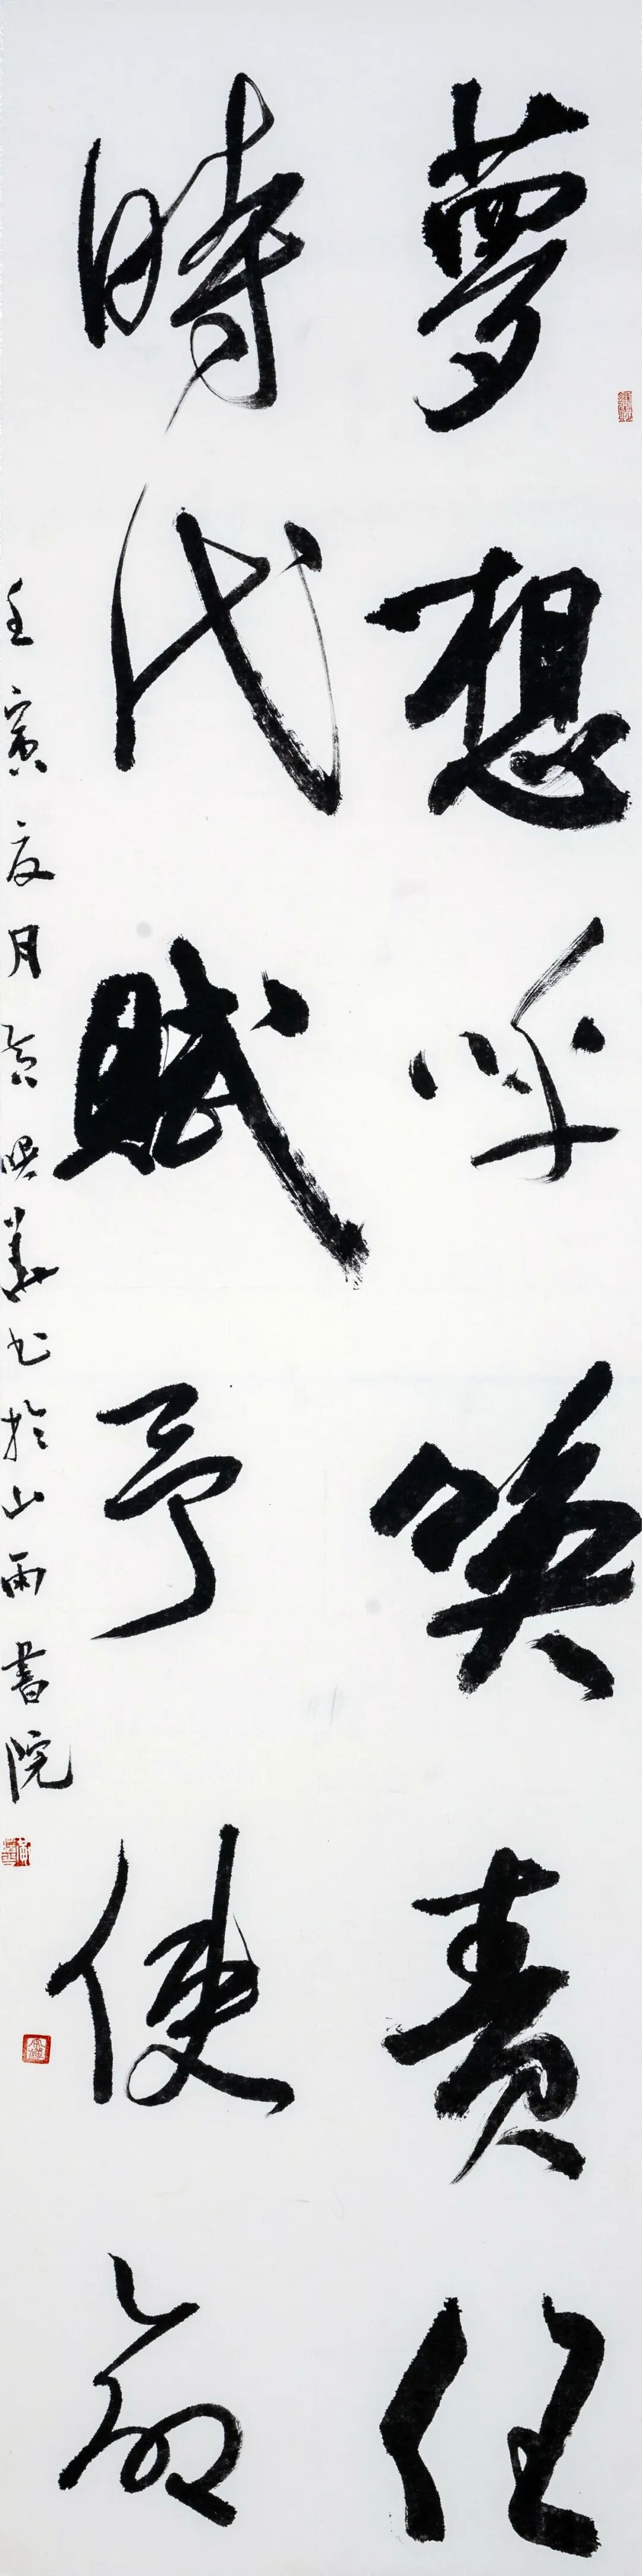 夢想呼喚責任
時代賦予使命
壬寅夏月黃映華书於山雨書院